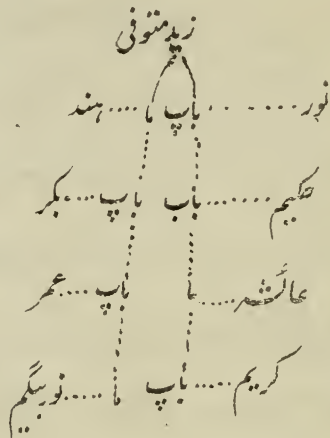 زید متوفی
نور ........ باپ ما .... ہند
حکیم ....... باپ باپ .... بکر
عائشہ ..... ما باپ .... عمر
کریم ..... باپ ما ..... نور بیگم